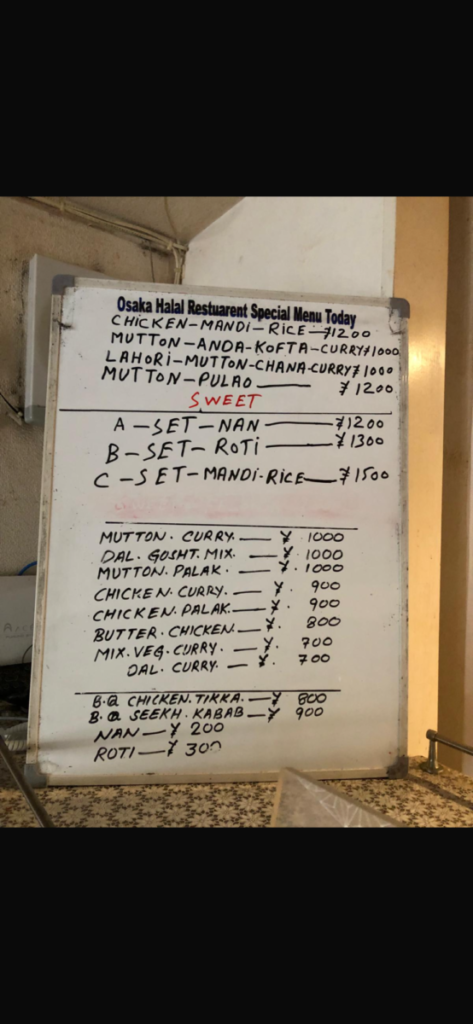 Osaka Halal Restuarent Special Menu Today
CHICKEN-MANDI-RICE-¥1200
MUTTON-ANDA-KOFTA-CURRY¥1000
LAHORI-MUTTON-CHANA-CURRY¥1000
MUTTON-PULAO — ¥1200
SWEET
A-SET-NAN — ¥1200
B-SET-ROTI — ¥1300
C-SET-MANDI-RICE — ¥1500
MUTTON. CURRY. — ¥ 1000
DAL. GOSHT. MIX. — ¥. 1000
MUTTON. PALAK. — ¥. 1000
CHICKEN. CURRY. — ¥. 900
CHICKEN. PALAK. — ¥. 900
BUTTER. CHICKEN. — ¥. 800
MIX. VEG. CURRY. — ¥. 700
DAL. CURRY. — ¥. 700
B.Q CHICKEN. TIKKA. — ¥ 800
B.Q SEEKH. KABAB — ¥ 900
NAN — ¥ 200
ROTI — ¥ 300